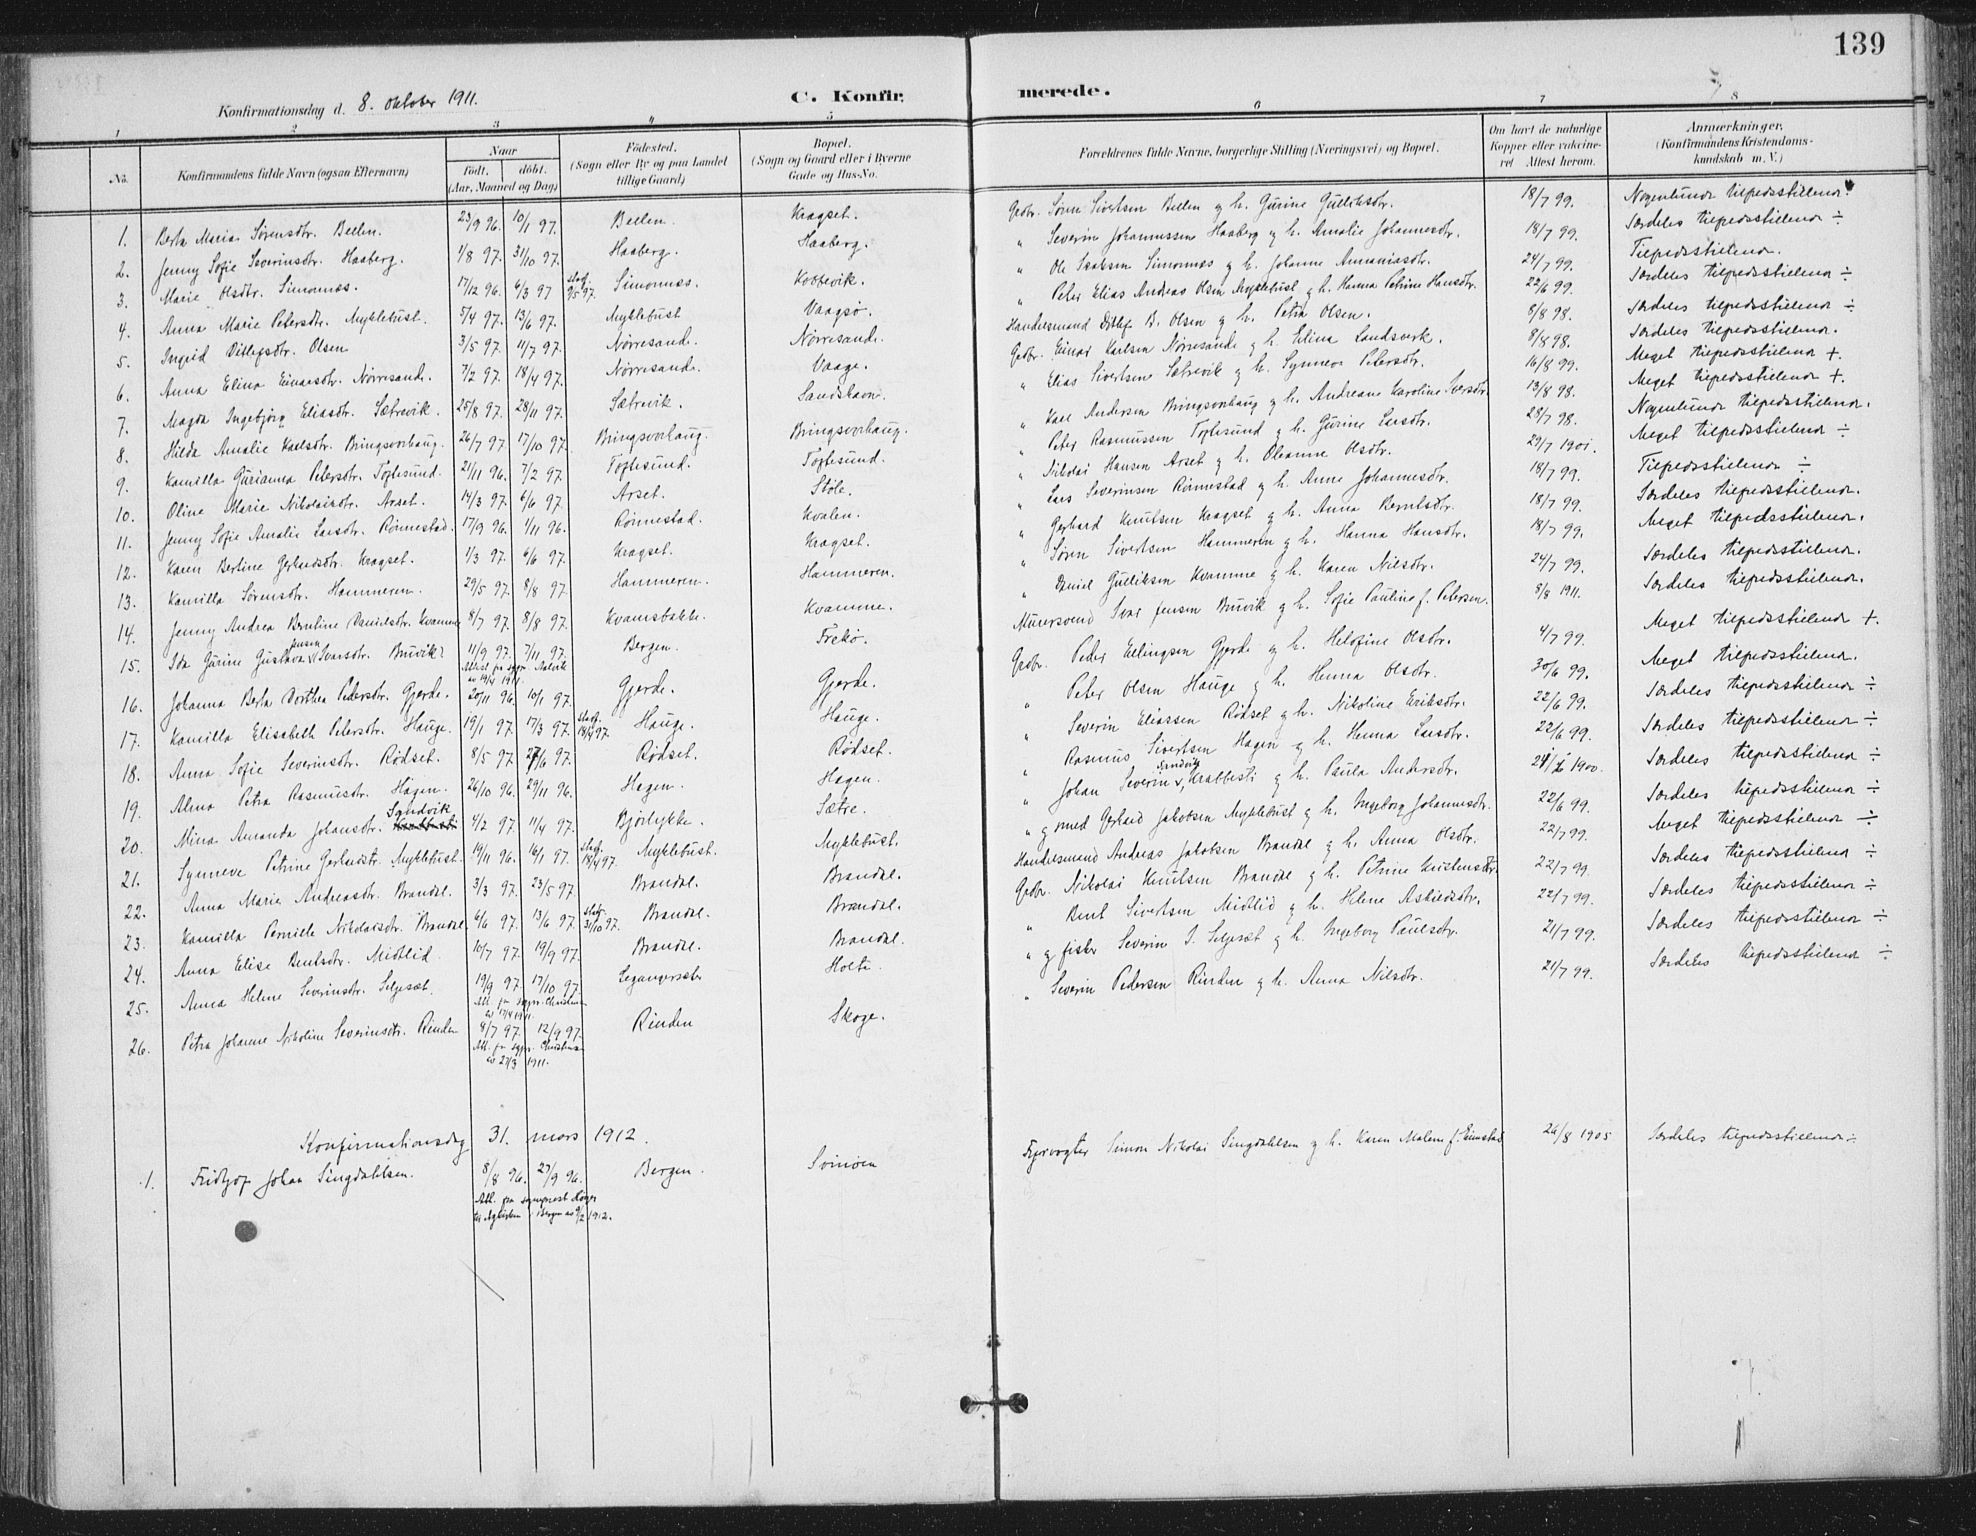 139
Konfirmationsdag d. 8. oktober 1911. C. Konfirmerede.
1 2 3 4 5 6 7 8
No. Konfirmandens fulde Navn (ogsaa Efternavn) Naar födt. döbt. (Aar, Maaned og Dag) Födested. (Sogn eller By og paa Landet tillige Gaard) Bopæl. (Sogn og Gaard eller i Byerne Gade og Hus-No. Forældrenes fulde Navne, borgerlige Stilling (Næringsvei) og Bopæl. Om havt de naturlige Kopper eller vakcineret Attest herom. Anmærkninger. (Konfirmandens Kristendomskundskab m. V.)
1. Berta Maria Sørensdtr. Bellen. 23/9 96. 10/1 97. Bellen. Kragset. Grdbr. Søren Sivertsen Bellen og h. Gurine Gulliksdtr. 18/7 99. Nogenlunde tilfredsstillende
2. Jenny Sofie Severinsdtr. Haaberg. 1/8 97. 31/10 97. Haaberg. Haaberg. " Severin Johannessen Haaberg og h. Amalie Johannesdtr. 18/7 99. Særdeles tilfredsstillende ÷
3. Marie Olsdtr. Simonnes. 17/12 96. 6/3 97 Simonnes. Kobbevik. " Ole Isaksen Simonnes og h. Johanne Annaniasdtr. 24/7 99. Tilfredsstillende.
4. Anna Marie Petersdtr. Myklebust. 5/4 97. 13/6 97. Myklebust Vaagsø. " Peter Elias Andreas Olsen Myklebust og h. Hanna Petrine Hansdtr. 22/6 99. Særdeles tilfredsstillende ÷
5. Ingrid Ditlefsdtr. Olsen 3/5 97. 11/7 97. Nørresande. Nørresande. Handelsmand Ditlef B. Olsen og h. Petra Olsen. 8/8 98. Særdeles tilfredsstillende ÷
6. Anna Elina Einarsdtr. Nørresande. 7/2 97. 18/4 97. Nørresande. Vaage. Grdbr. Einar Karlsen Nørresande og h. Elina Landsverk. 8/8 98. Særdeles tilfredsstillende.
7. Magda Ingebjørg Eliasdtr. Sætrevik. 25/8 97. 28/11 97. Sætrevik. Sandshavn. " Elias Sivertsen Sætrevik og h. Synneve Petersdtr. 16/8 99. Meget tilfredsstillende +.
8. Hilda Amalie Karlsdtr. Bringsvorhaug. 26/7 97. 17/10 97. Bringsvorhaug. Bringsvorhaug. " Karl Andersen Bringsvorhaug og h. Andreane Karoline Iversdtr. 13/8 98. Meget tilfredsstillende +.
9. Kamilla Gurianna Petersdtr. Toftesund. 21/11 96. 7/2 97. Toftesund. Toftesund. " Peter Rasmussen Toftesund og h. Gurine Larsdtr. 28/7 98. Nogenlunde tilfredsstillende.
10. Oline Marie Nikolaisdtr. Arset. 14/3 97. 6/6 97. Arset. Støle. " Nikolai Hansen Arset og h. Oleanne Olsdtr. 29/7 1901. Meget tilfredsstillende ÷
11. Jenny Sofie Amalie Larsdtr. Rönnestad. 17/9 96. 1/11 96. Rönnestad. Kvalen. " Lars Severinsen Rönnestad og h. Anne Johannesdtr. 18/7 99. Tilfredsstillende ÷
12. Karen Bertine Gerhardsdtr. Kragset. 1/3 97. 6/6 97. Kragset. Kragset. " Gerhard Knutsen Kragset og h. Anna Berntsdtr. 18/7 99. Særdeles tilfredsstillende.
13. Kamilla Sørensdtr. Hammeren. 29/5 97. 8/8 97. Hammeren. Hammeren. " Søren Sivertsen Hammeren og h. Hanna Hansdtr. 18/7 99. Meget tilfredsstillende.
14. Jenny Andrea Berntine Danielsdtr. Kvamme 8/7 97. 8/8 97. Kvamsbakke. Kvamme. " Daniel Gulliksen Kvamme og h. Karen Nilsdtr. 24/7 99. Særdeles tilfredsstillende.
15. Ida Gurine Gustava Jensen Ivarsdtr. Buvik. 11/9 97. 7/11 97. Bergen. Frekö. Murersvend Ivar Jensen Buvik og h. Sofie Pauline f. Petersen. 8/8 1911. Særdeles tilfredsstillende.
16. Johanna Berta Dorthea Pedersdtr. Gjerde. 20/11 96. 10/1 97. Gjerde. Gjerde. Grdbr. Peder Erlingsen Gjerde og h. Helofine Olsdtr. 4/7 99. Meget tilfredsstillende +.
17. Kamilla Elisabeth Petersdtr. Hauge. 19/1 97. 17/3 97. Hauge. Hauge. " Peter Olsen Hauge og h. Henna Olsdtr. 30/6 99. Meget tilfredsstillende.
18. Anna Sofie Severinsdtr. Rödset. 8/5 97. 27/6 97. Rödset. Rödset. " Severin Eliassen Rödset og h. Nikoline Eriksdtr. 22/6 99. Særdeles tilfredsstillende ÷
19. Alma Petra Rasmusdtr. Hagen. 26/10 96. 29/11 96. Hagen. Hagen. " Rasmus Sivertsen Hagen og h. Henna Larsdtr. 22/6 99. Særdeles tilfredsstillende ÷
20. Mina Amanda Johansdtr. Sandvik 4/2 97. 11/4 97. Bjørlykke. Sætre. " Johan Severin Sandvik Krabbesti og h. Paula Andersdtr. 1900. Særdeles tilfredsstillende ÷
21. Synneve Petrine Gerhardsdtr. Myklebust. 19/11 96. 16/1 97. Myklebust. Myklebust. " og smed Gerhard Jakobsen Myklebust og h. Ingeborg Johannesdtr. 22/6 99. Særdeles tilfredsstillende ÷
22. Anna Marie Andreasdtr. Brandal. 3/3 97. 23/5 97 Brandal. Brandal. Handelsmand Andreas Jakobsen Brandal og h. Anna Olsdtr. 22/7 99. Meget tilfredsstillende ÷
23. Kamilla Pernille Nikolaisdtr. Brandal. 6/6 97. 13/6 97. Brandal. Brandal. Grdbr. Nikolai Knutsen Brandal og h. Petrine Kristensdtr. 22/7 99. Særdeles tilfredsstillende ÷
24. Anna Elise Berntsdtr. Midtlid. 10/7 97. 19/9 97. Brandal. Brandal. " Bernt Sivertsen Midtlid og h. Helene Aslaksdtr. 22/7 99. Særdeles tilfredsstillende ÷
25. Anna Helene Severinsdtr. Seljeset. 19/9 97. 17/10 97. Holte. " og fisker Severin I. Seljesæt og h. Ingeborg Paulsdtr. 21/7 99. Særdeles tilfredsstillende ÷
26. Petra Johanne Nikoline Severinsdtr. Rinden 8/7 97. 12/9 97. Rinden Skoge. " Severin Pedersen Rinden og h. Anna Nilsdtr. 21/7 99. Særdeles tilfredsstillende ÷
Konfirmationsdag 31. mars 1912.
1. Fridtjof Johan Singdahlsen. 8/8 96. 27/9 96. Bergen. Svinöen Fyrvogter Simon Nikolai Singdahlsen og h. Karen Malene f. Eimstad 26/8 1905 Særdeles tilfredsstillende ÷